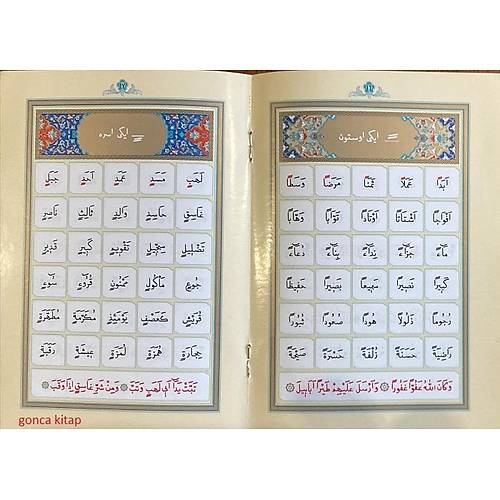 ١٦
ایکی اوستون
اَبَدًا عَمَلًا ثَمَنًا مَرَضًا وَسَطًا
اَفْوَاجًا اَشْتَاتًا اَوْتَادًا تَوَّابًا وَهَّابًا
مَٓاءً جَزَٓاءً نِدَٓاءً بِنَٓاءً دُعَٓاءً
كَبِيرًا نَصِيرًا سَمِيعًا بَصِيرًا حَفِيظًا
رُجُومًا ذَلُولًا هُودًا صَعُودًا ثُبُورًا
رَاضِيَةً حَسَنَةً زُلْفَةً حَسْرَةً صَيْحَةً
وَكَانَ اللّٰهُ عَفُوًّا غَفُورًا ۞ وَاَرْسَلَ عَلَيْهِمْ طَيْرًا اَبَابِيلَ ۞
١٧
ایکی اسره
لَهَبٍ مَسَدٍ عَمَدٍ اَحَدٍ جَبَلٍ
غَاسِقٍ حَاسِدٍ وَالِدٍ ثَالِثٍ نَاصِرٍ
تَضْلِيلٍ سِجِّيلٍ تَقْوِيمٍ كَبِيرٍ قَدِيرٍ
جُوعٍ مَأْكُولٍ مَمْنُونٍ قُرُٓوءٍ سُٓوءٍ
قُرَيْشٍ كَعَصْفٍ يَوْمَئِذٍ مُكَرَّمَةٍ مُطَهَّرَةٍ
حِجَارَةٍ هُمَزَةٍ لُمَزَةٍ عِيشَةٍ رَقَبَةٍ
تَبَّتْ يَدَٓا اَبِي لَهَبٍ وَتَبَّ ۞ وَمِنْ شَرِّ غَاسِقٍ اِذَا وَقَبَ ۞
gonca kitap